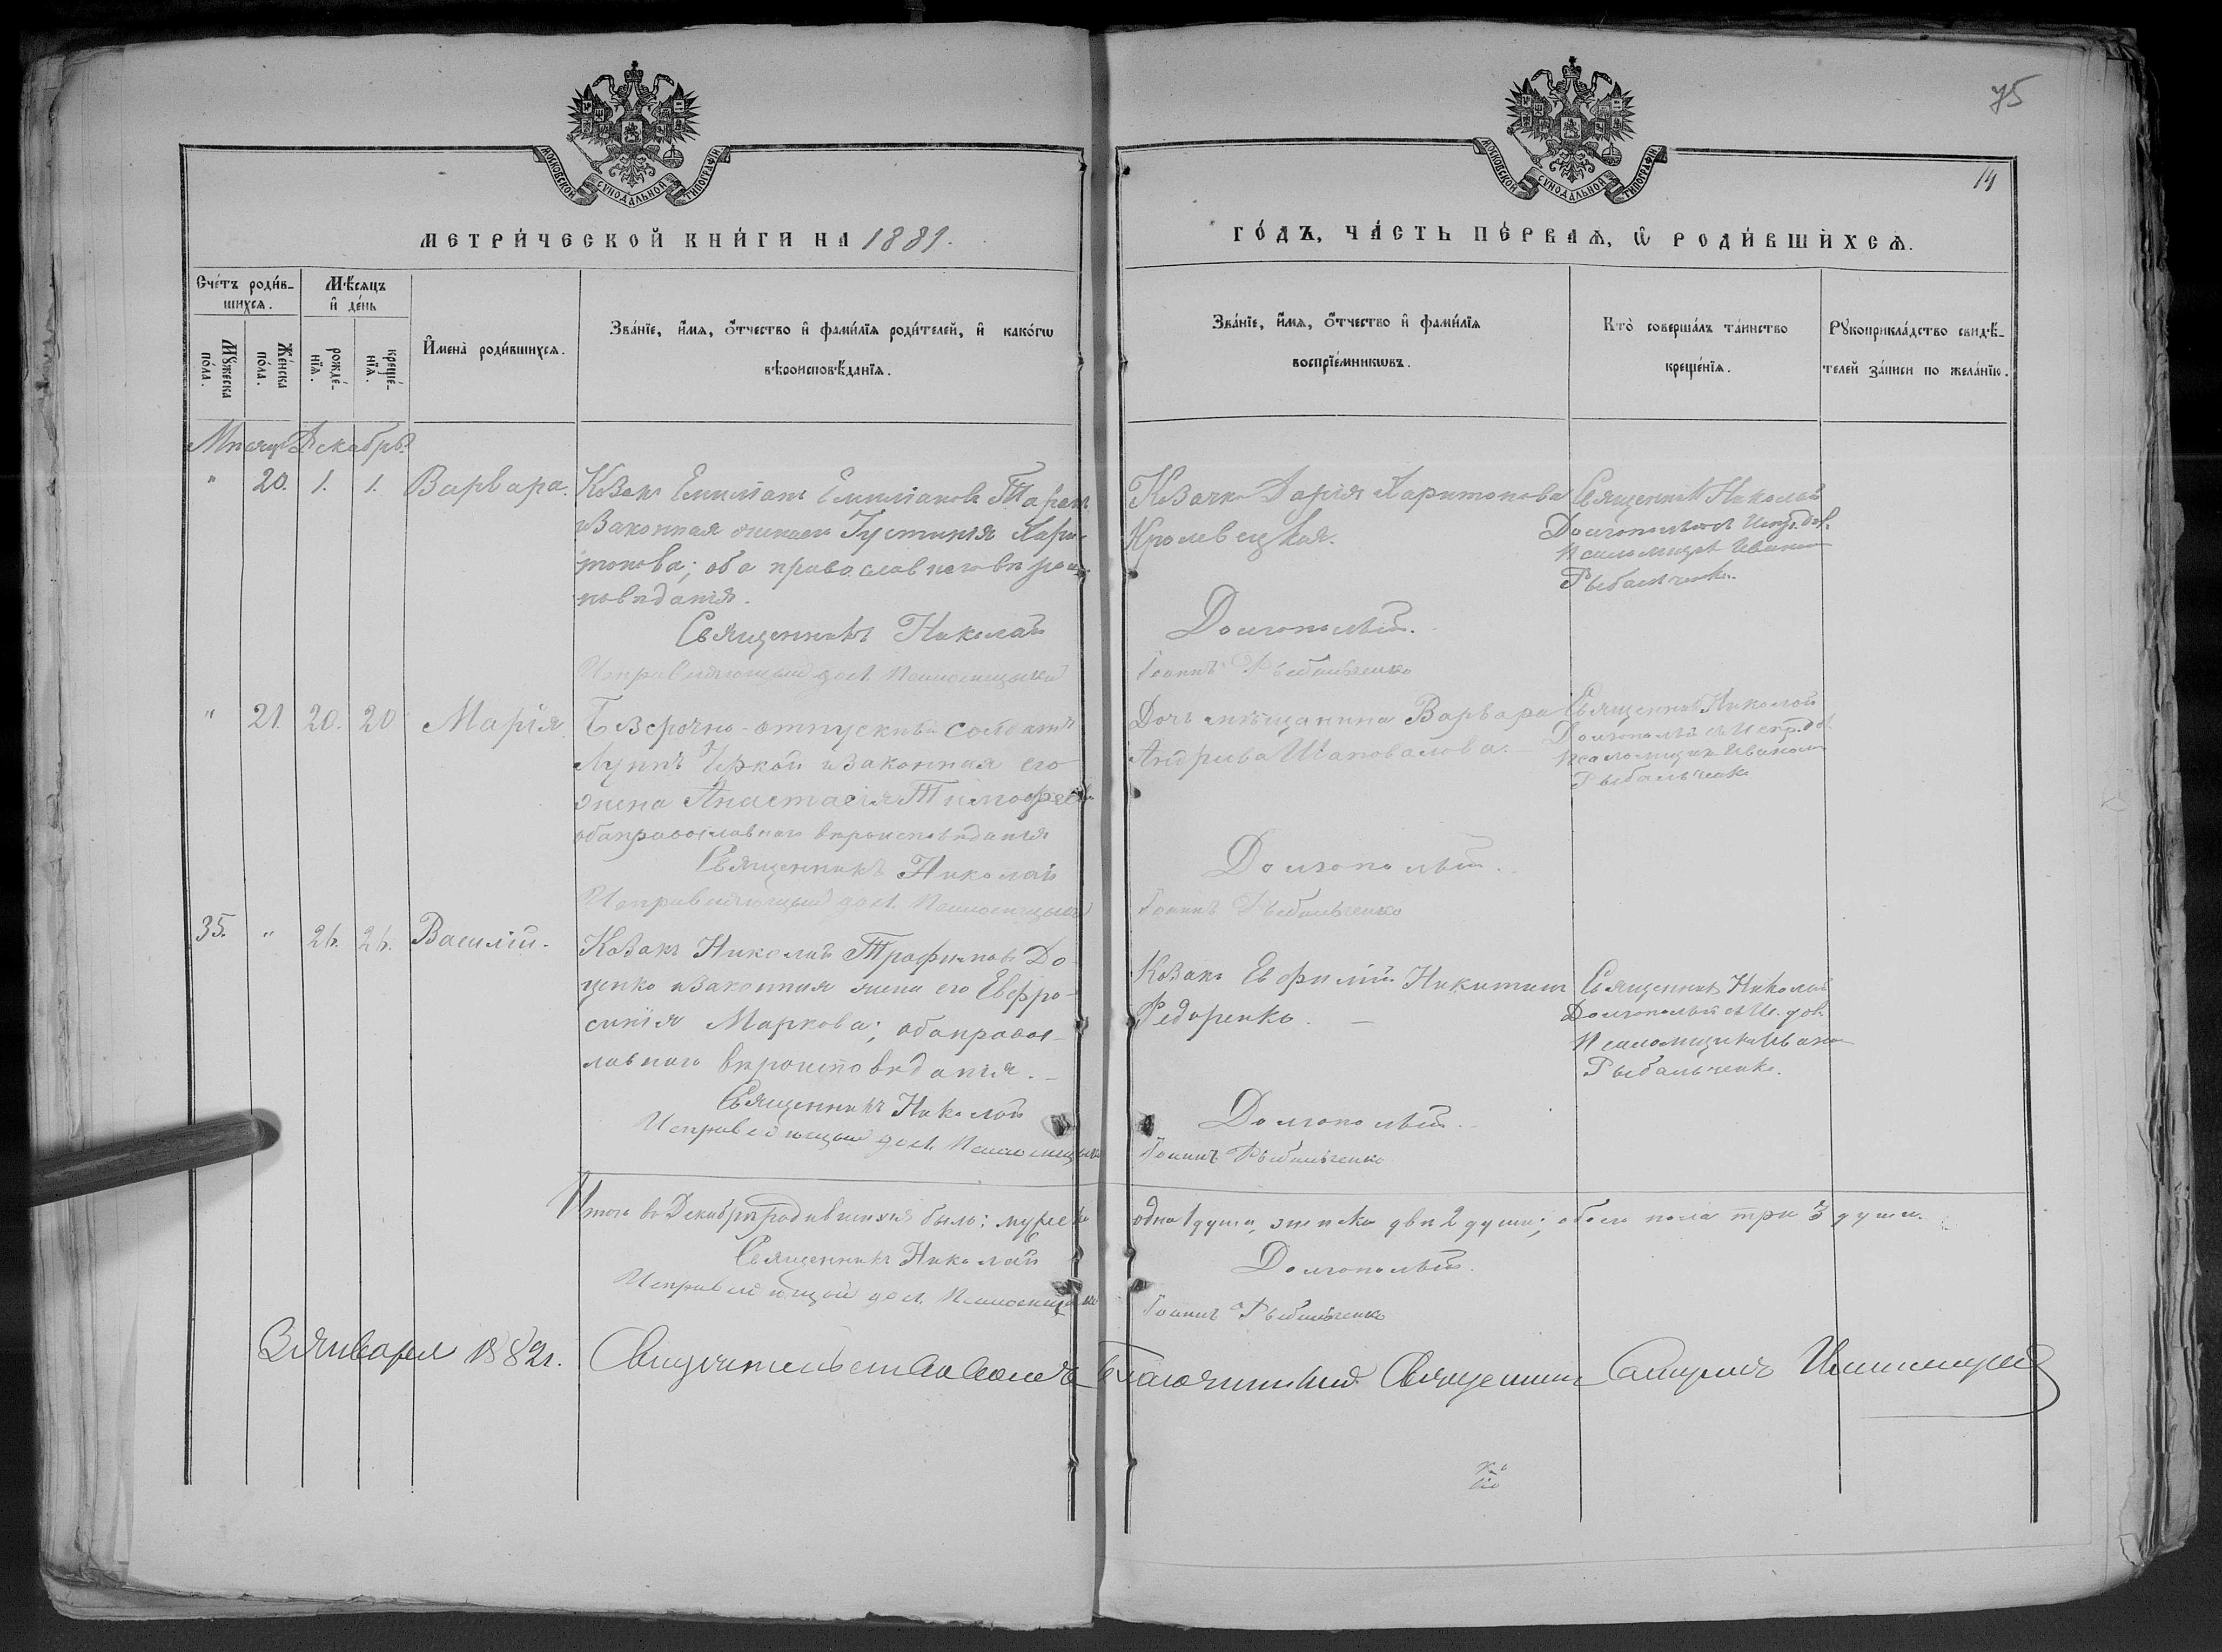 75
МОСКОВСКОЙ СѴНОДАЛЬНОЙ ТИПОГРАФІИ
МОСКОВСКОЙ СѴНОДАЛЬНОЙ ТИПОГРАФІИ
14
МЕТРИ́ЧЕСКОЙ КНИ́ГИ НА 1881.
ГО́ДЪ, ЧА́СТЬ ПЕ́РВАѦ, Ѡ РОДИ́ВШИХСѦ.
Сче́тъ роди́в-
шихсѧ.
Мѣ́сяцъ
и҆ де́нь
Мꙋ́жеска
по́ла.
Же́нска
по́ла.
рожде́-
нїѧ.
креще́-
нїѧ.
И҆мена̀ роди́вшихсѧ.
Зва́нїе, и҆́мѧ, ѻ҆́тчество и҆ фами́лїѧ роди́телей, и҆ како́гѡ
вѣроисповѣ́данїѧ.
Зва́нїе, и҆́мѧ, ѻ҆́тчество и҆ фами́лїѧ
воспрїе́мникѡвъ.
Кто̀ соверша́лъ та́инство
креще́нїѧ.
Рꙋкоприкла́дство свидѣ́-
телей за́писи по жела́нїю.
Мѣсяцъ Декабрь
" 20. 1. 1. Варвара.
Козакъ Емиліанъ Емиліановъ Таран
и законная жена его Іустинія Хари-
тонова; оба православнаго вѣроис-
повѣданія.
Священникъ Николай
Исправляющій дол. Псаломщика
Козачка Дарія Харитонова
Кролевецкая.
Долгополый.
Іоаннъ Рыбальченко
Священникъ Николай
Долгополый съ Испр. дол.
Псаломщика Иваномъ
Рыбальченко.
" 21. 20. 20 Марія.
Безсрочно-отпускной солдатъ
Луппъ и законная его
жена Анастасія Тимофеева
оба православнаго вѣроисповѣданія
Священникъ Николай
Исправляющій дол. Псаломщика
Дочь мѣщанина Варвара
Андріева Шаповалова.
Долгополый.
Іоаннъ Рыбальченко
Священникъ Николай
Долгополый съ Испр. дол.
Псаломщика Иваномъ
Рыбальченко
35. " 26. 26. Василій.
Козакъ Николай Трофимовъ До-
ценко и законная жена его Евфро-
синія Маркова; оба правос-
лавнаго вѣроисповѣданія.
Священникъ Николай
Исправляющій дол. Псаломщика
Козакъ Евфимій Никитинъ
Федоренко.
Долгополый.
Іоаннъ Рыбальченко
Священникъ Николай
Долгополый съ Ис. дол.
Псаломщика Иваномъ
Рыбальченко.
Итого въ Декабрѣ родившихся было: мужеска одна 1 душа, женска двѣ 2 души; обоего пола три 3 души.
Священникъ Николай Долгополый.
Исправляющій дол. Псаломщика Іоаннъ Рыбальченко
3 Января 1882 г. Свидѣтельствовалъ Благочинный Священникъ